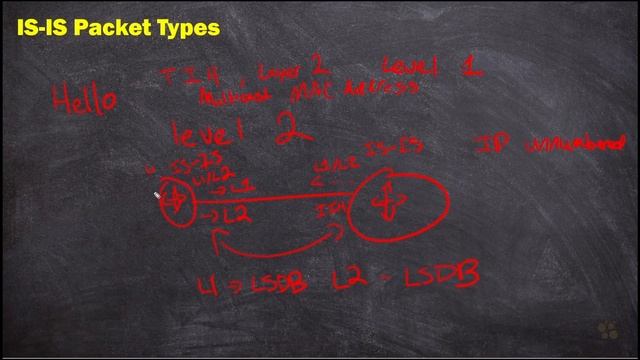 IS-IS Packet Types
Layer 2 Level 1
Hello Multicast MAC Address
Level 2
IS-IS L1/L2 IS-IS IP unnumbered
L1/L2 → L1
→ L2
L1 → LSDB L2 - LSDB